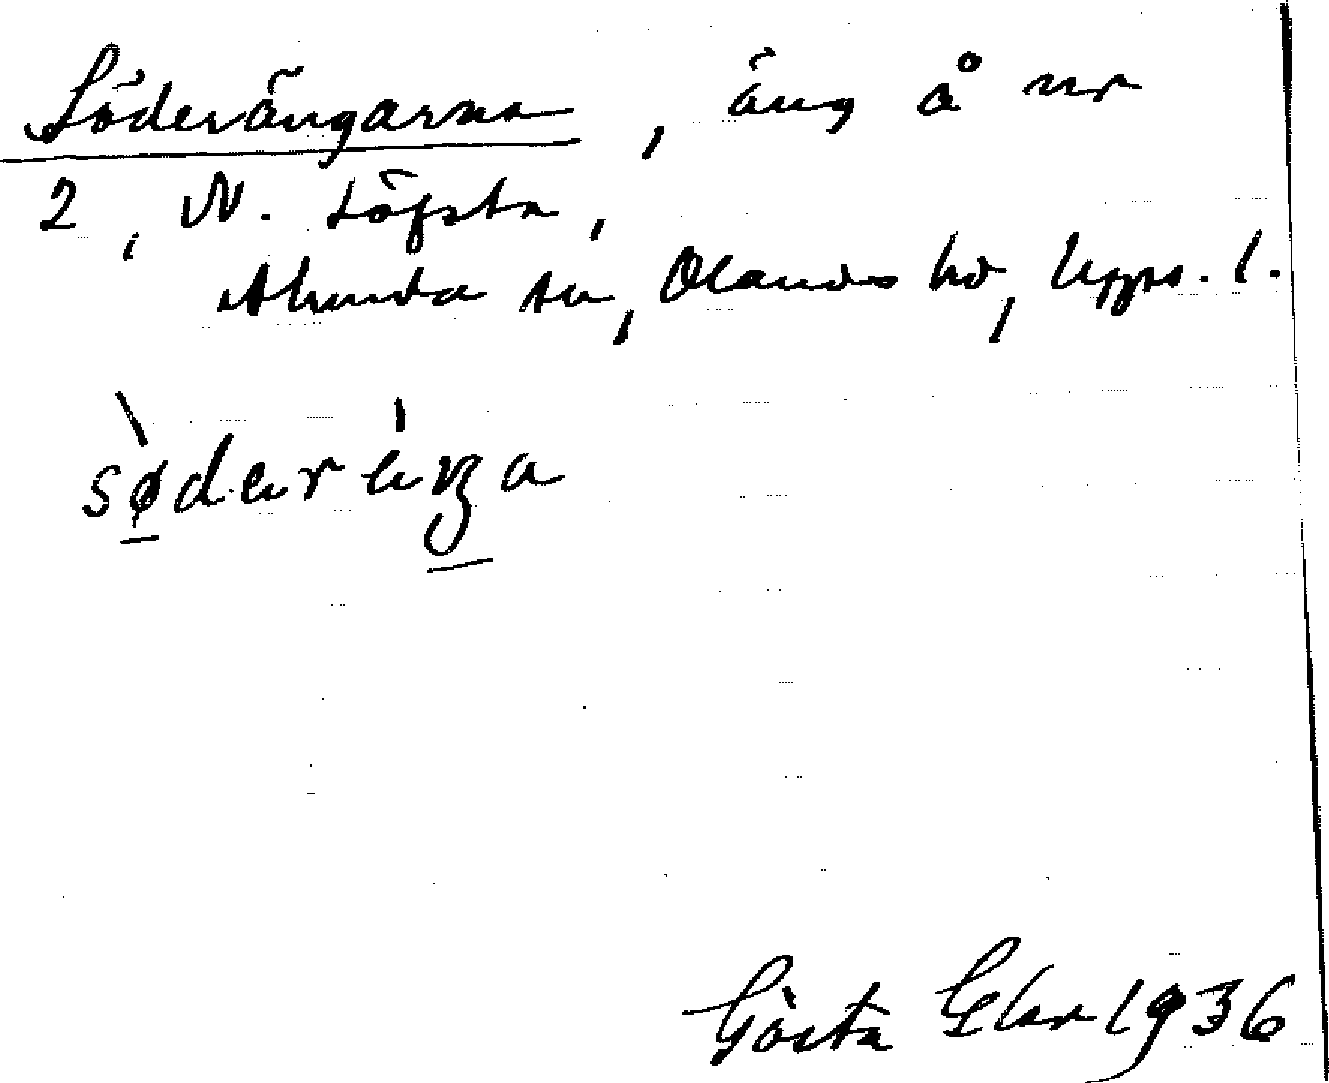 Söderängarna, äng å nr
2, N. Löfsta,
Alunda sn, Olands hd, Upps. l.
sø̀derèŋa
Gösta 1936